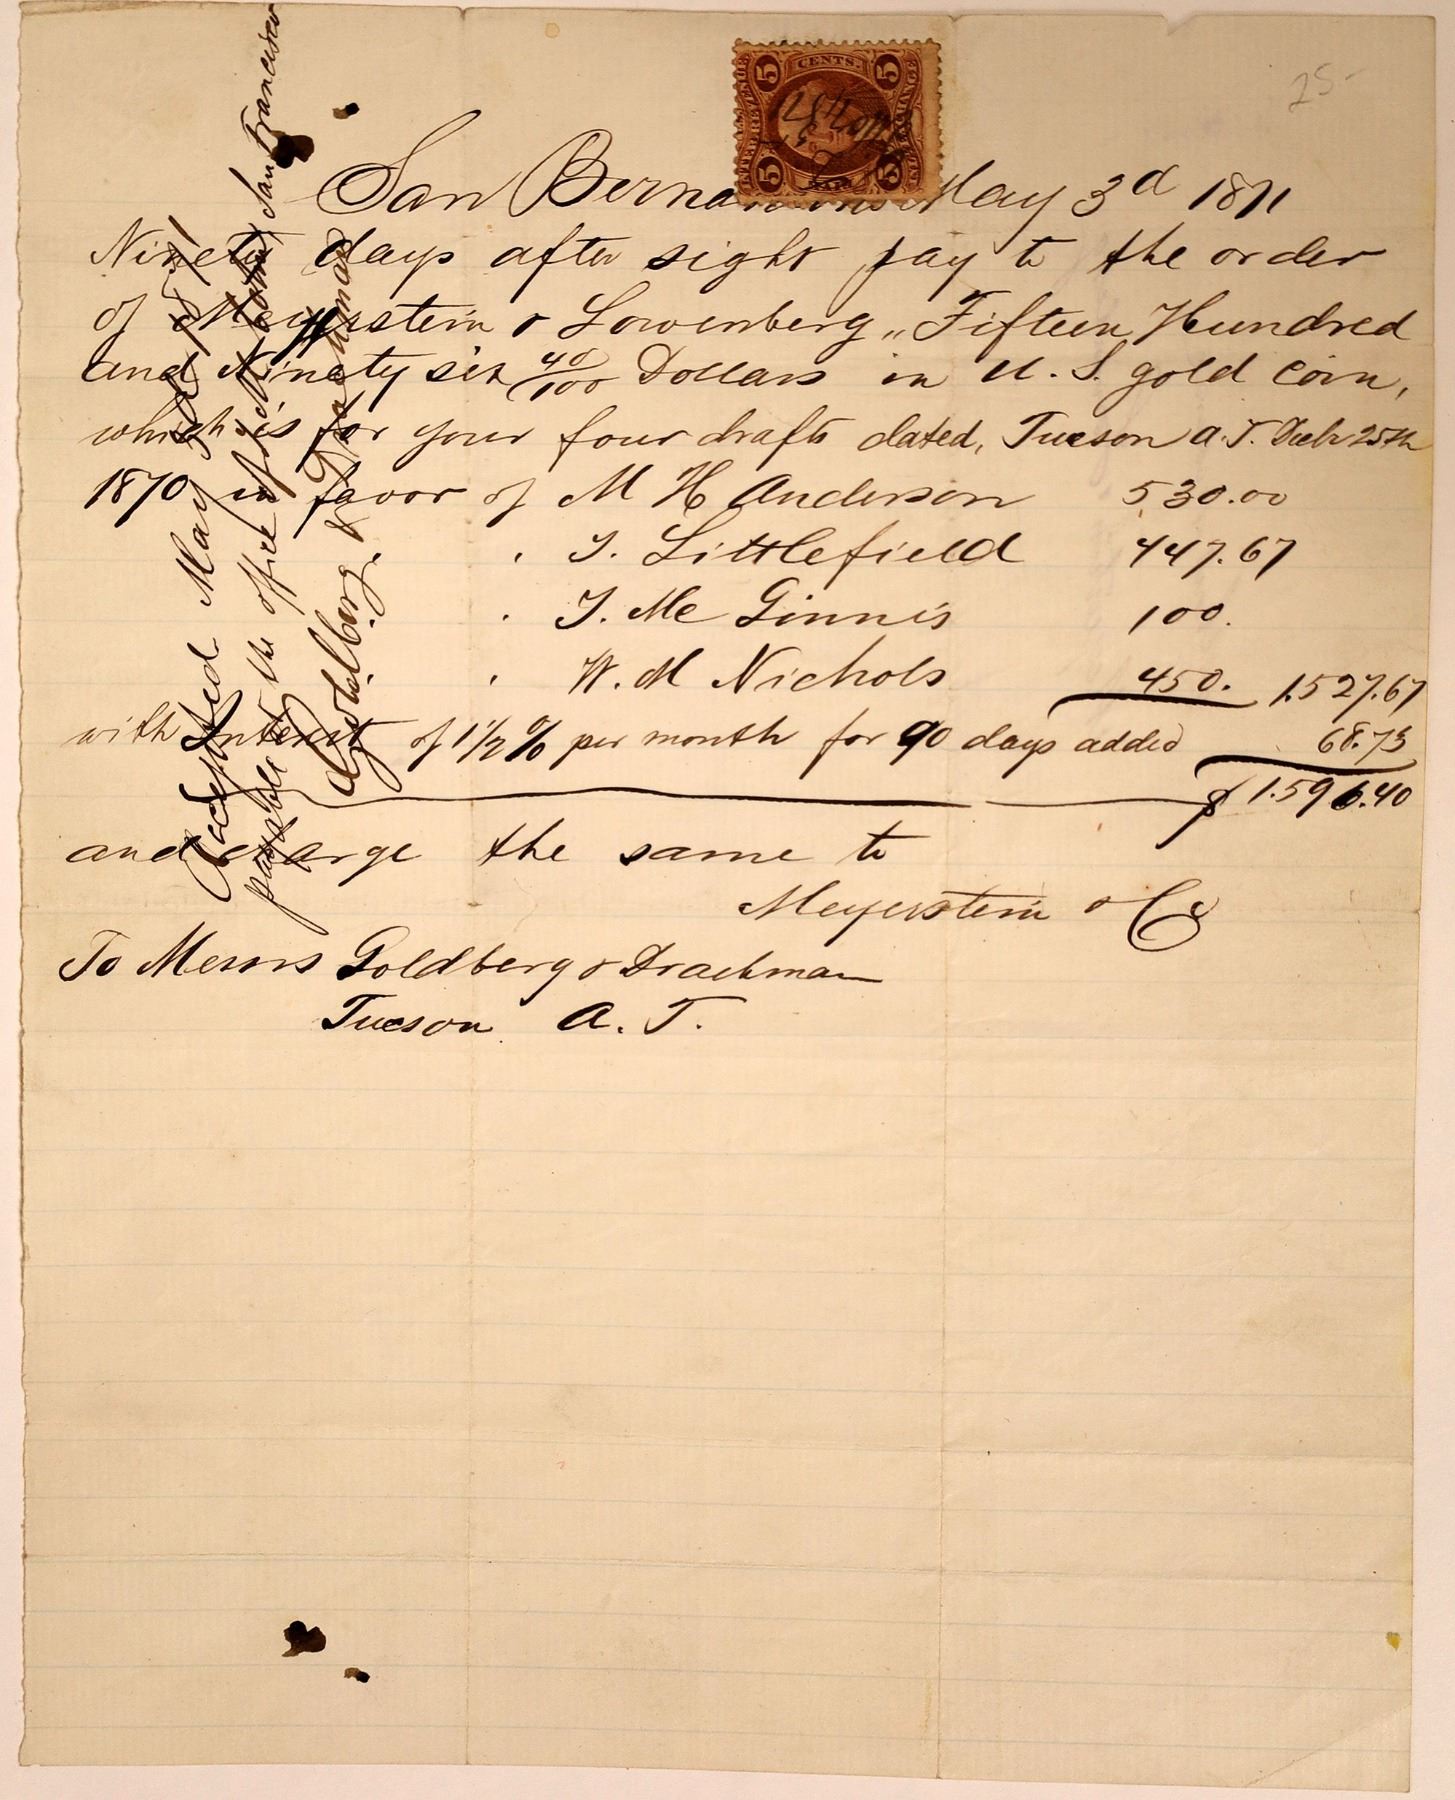 25-
5 CENTS. 5
INTER. REVENUE
EXCHANGE
5 5
San Bernardino May 3d 1871
Ninety days after sight pay to the order
of Meyerstein & Lowenberg „Fifteen Hundred
and Ninety six 40/100 Dollars in U. S. gold coin,
which is for your four drafts dated, Tucson A. T. Decbr 25th
1870 in favor of M H Anderson 530.00
" T. Littlefield 447.67
" T. Mc Ginnis 100.
" W. M Nichols 450. 1.527.67
with Interest of 1 1/2 % per month for 90 days added 68.73
$ 1.596.40
and charge the same to
Meyerstein & Co
To Messrs Goldberg & Drachman
Tucson A. T.
Accepted May 3d 1871
payable at the office of San Francisco
Goldberg & Drachman